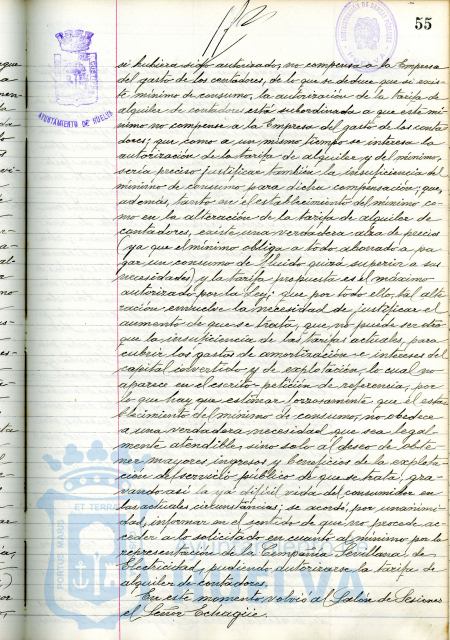 55
AYUNTAMIENTO DE HUELVA
si hubiera sido autorizado, no compensa a la Empresa
del gasto de los contadores, de lo que se deduce que si exis-
te mínimo de consumo, la autorización de la tarifa de
alquiler de contadores está subordinada a que este mí-
nimo no compense a la Empresa del gasto de los conta
dores; que como a un mismo tiempo se interesa la
autorización de la tarifa de alquiler y del mínimo,
sería preciso justificar también la insuficiencia del
mínimo de consumo para dicha compensación; que,
además, tanto en el establecimiento del mínimo co-
mo en la alteración de la tarifa de alquiler de
contadores, existe una verdadera alza de precios
(ya que el mínimo obliga a todo abonado a pa
gar un consumo de fluido quizá superior a sus
necesidades) y la tarifa propuesta es el máximo
autorizado por la Ley; que por todo ello, tal alte
ración envuelve la necesidad de justificar el
aumento de que se trata, que no puede ser otro
que la insuficiencia de las tarifas actuales, para
cubrir los gastos de amortización e intereses del
capital invertido y de explotación, lo cual no
aparece en el escrito-petición de referencia, por
lo que hay que estimar forzosamente que el esta
blecimiento del mínimo de consumo, no obedece
a una verdadera necesidad que sea legal
mente atendible, sino solo al deseo de obte-
ner mayores ingresos y beneficios de la explota-
ción del servicio público de que se trata, gra-
vando así la ya difícil vida del consumidor en
las actuales circunstancias; se acordó, por unanimi-
dad, informar en el sentido de que no procede ac
ceder a lo solicitado en cuanto al mínimo por la
representación de la Compañía Sevillana de
Electricidad, pudiendo autorizarse la tarifa de
alquiler de contadores.
En este momento volvió al Salón de Sesiones
el Señor Echagüe.
ET TERRAE
PORTUS MARIS
Ayuntamiento de
HUELVA